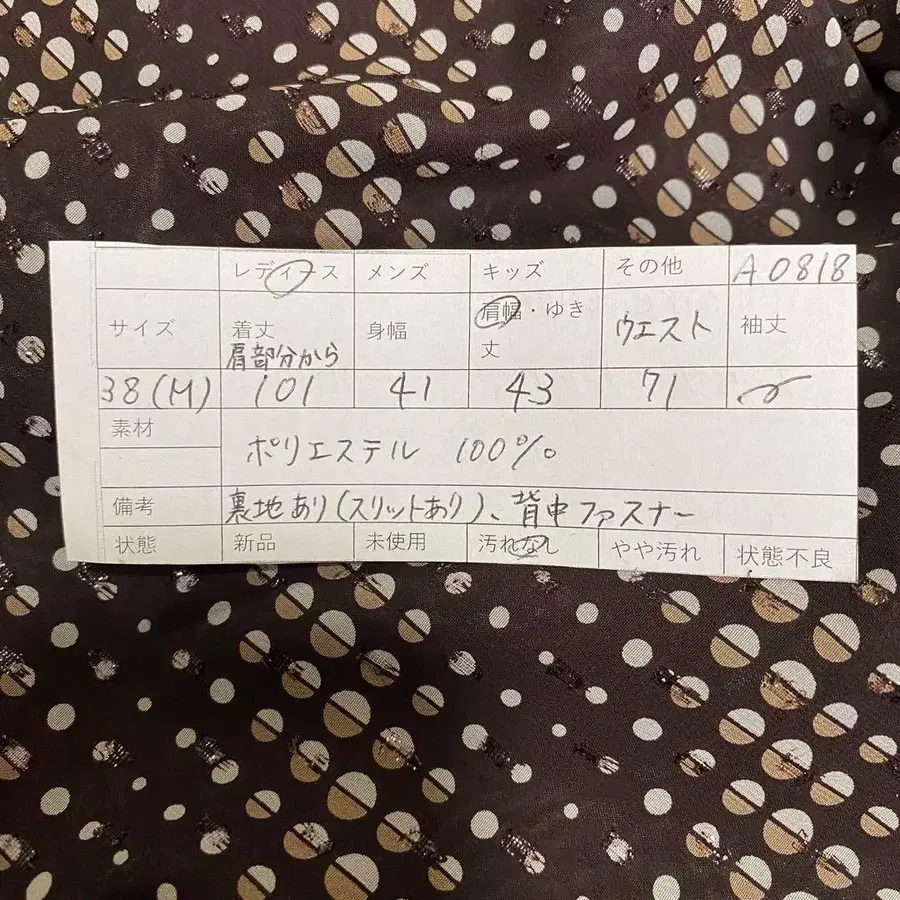 レディース メンズ キッズ その他 A0818
サイズ 着丈 肩部分から 身幅 肩幅・ゆき丈 ウエスト 袖丈
38(M) 101 41 43 71
素材 ポリエステル 100%
備考 裏地あり(スリットあり)、背中ファスナー
状態 新品 未使用 汚れなし やや汚れ 状態不良